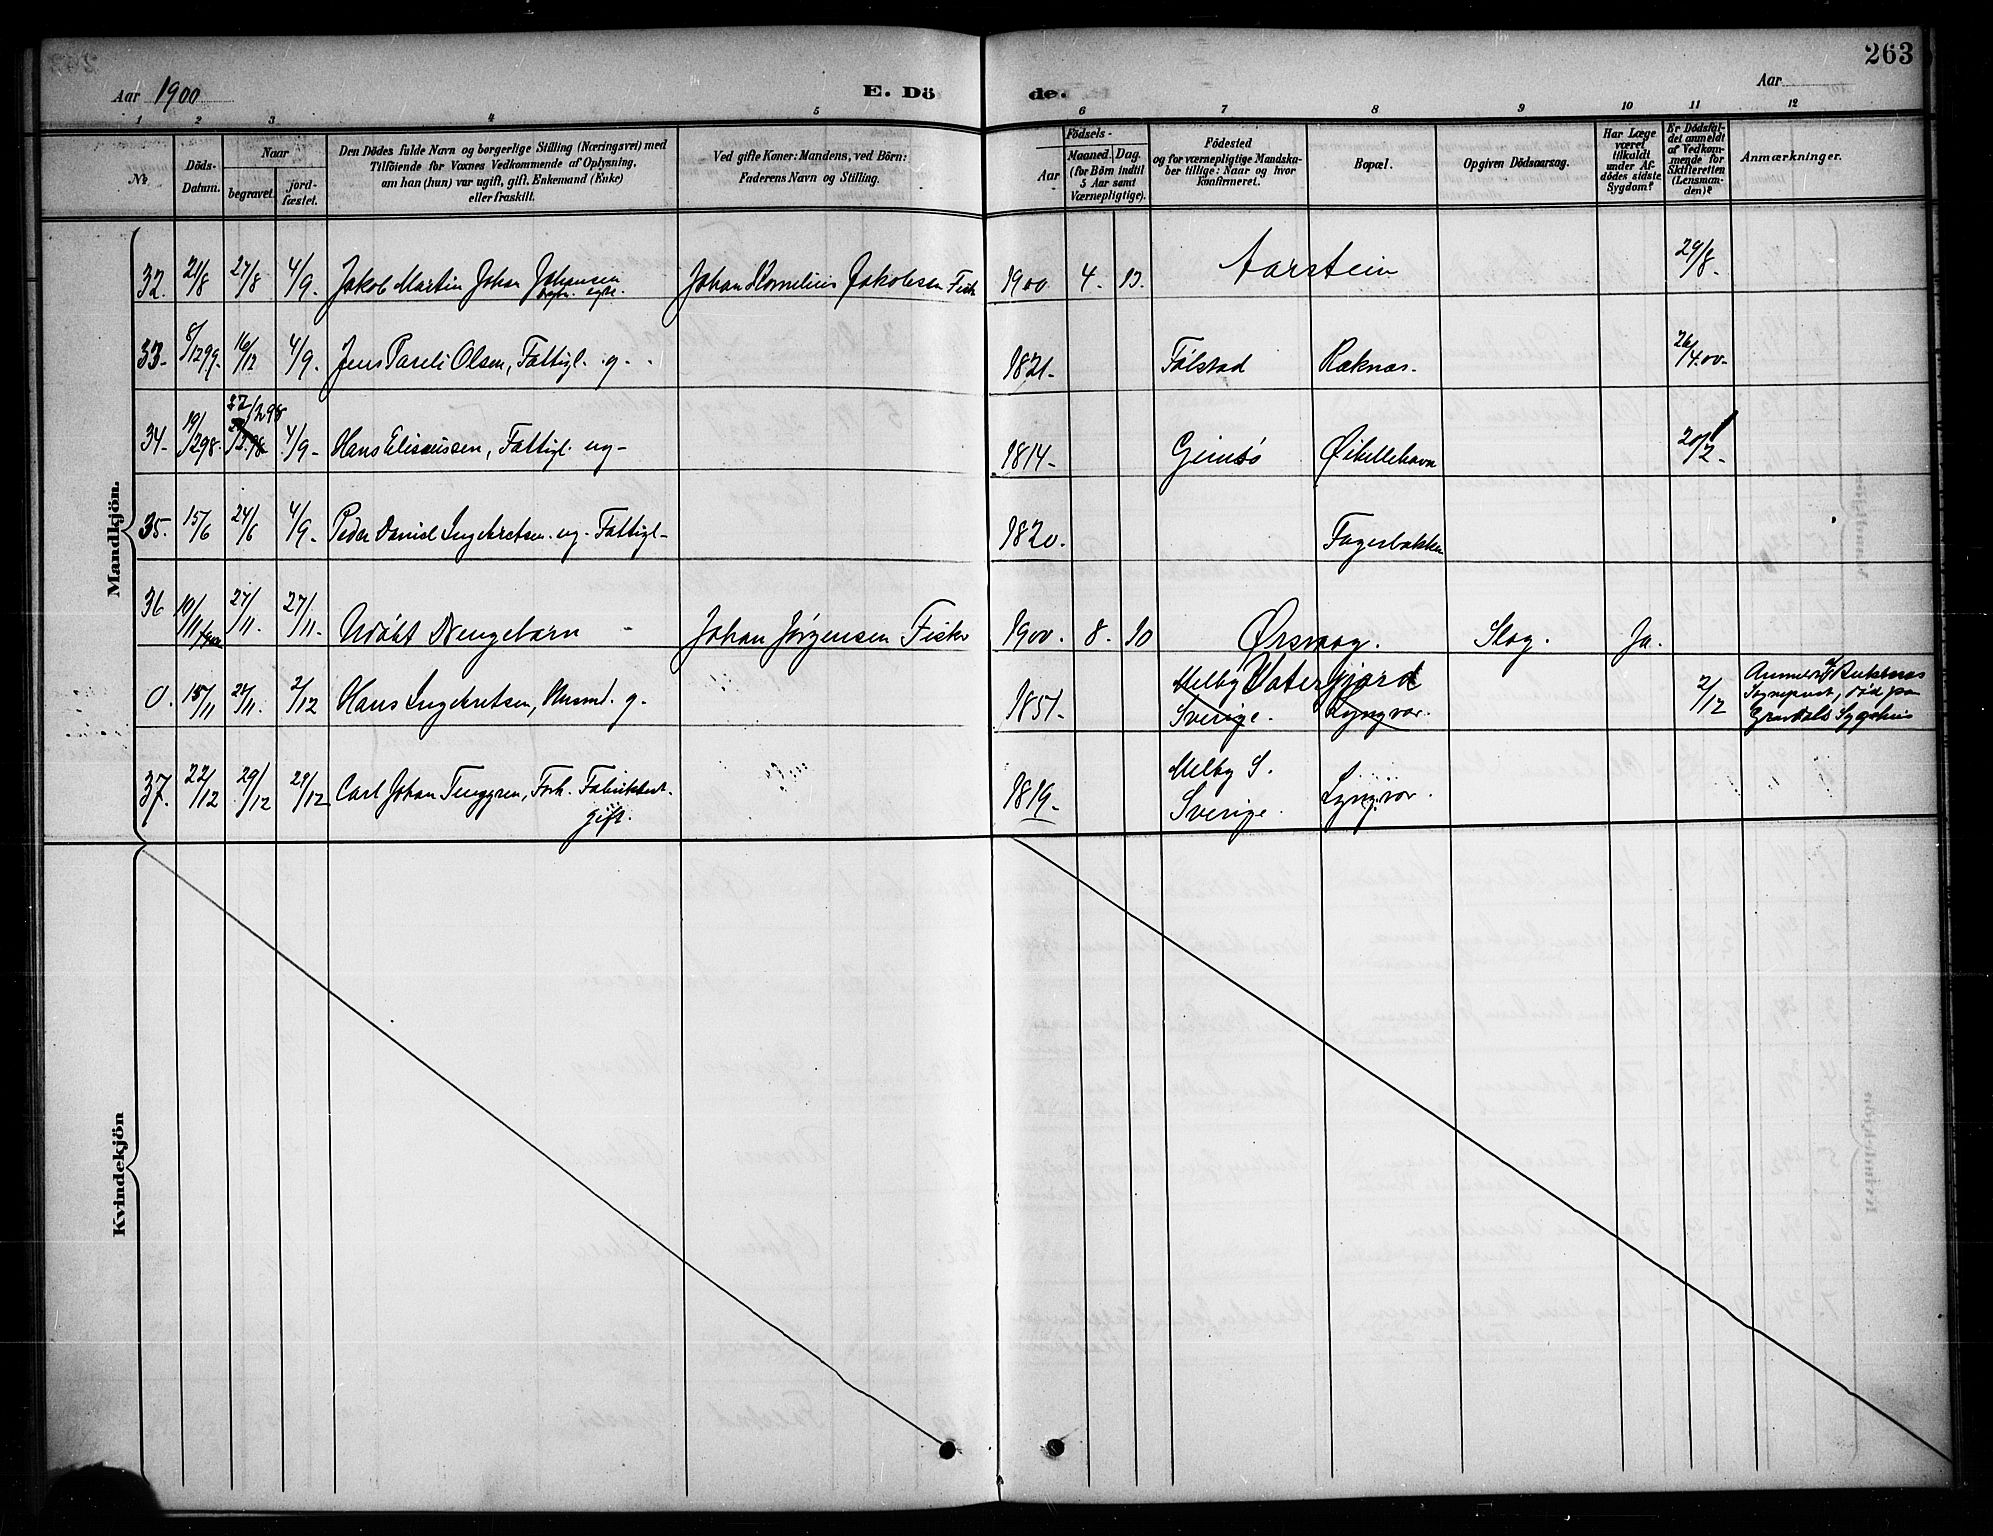 263
Aar 1900
E. Dö
de.
Aar
1 2 3 4 5 6 7 8 9 10 11 12
№
Döds-
Datum.
Naar
begravet.
jord-
fæstet.
Den Dödes fulde Navn og borgerlige Stilling (Næringsvei) med
Tilföiende for Voxnes Vedkommende af Oplysning,
om han (hun) var ugift, gift, Enkemand (Enke)
eller fraskilt.
Ved gifte Koner: Mandens, ved Börn:
Faderens Navn og Stilling.
Födsels-
Aar
Maaned.
Dag.
(for Börn indtil
5 Aar samt
Værnepligtige).
Födested
og for værnepligtige Mandska-
ber tillige: Naar og hvor
Konfirmeret.
Bopæl.
Opgiven Dödsaarsag.
Har Læge
været
tilkaldt
under Af-
dödes sidste
Sygdom?
Er Dödsfal-
det anmeldt
af Vedkom-
mende for
Skifteretten
(Lensman-
den)?
Anmærkninger.
Mandkjön.
32. 21/8 27/8 4/9. Jakob Martin Johan Johansen Johan Kornelius Jakobsen Fisk 1900 4. 13. Aarstein 29/8.
33. 8/12 99. 16/12 4/9. Jens Pareli Olsen, Fattigl. g. 1821. Tölstad Ræknæs. 26/4.00.
34. 19/2 98. 27/2 98 4/9. Hans Eliseussen, Fattigl. ug. 1814. Gimsö 20/2.
35. 15/6 24/6 4/9. Peder Daniel Ingebretsen. ug. Fattigl. 1820. Fagerbakken
36 19/11 27/11. 27/11. Udöbt Drengebarn Johan Jørgensen Fisker 1900. 8. 10 Ørsvaag. Slag. Ja.
0. 15/11 27/11. 2/12 Hans Ingebretsen, Husmd. g. 1851. Melby Vaterfjord
Sverige. Lyngvær. 2/12
37. 22/12 29/12 29/12 Carl Johan Tenggren, Forh. Fabrikbest.
gift. 1819. Melby S.
Sverige. Lyngvær.
Kvindekjön